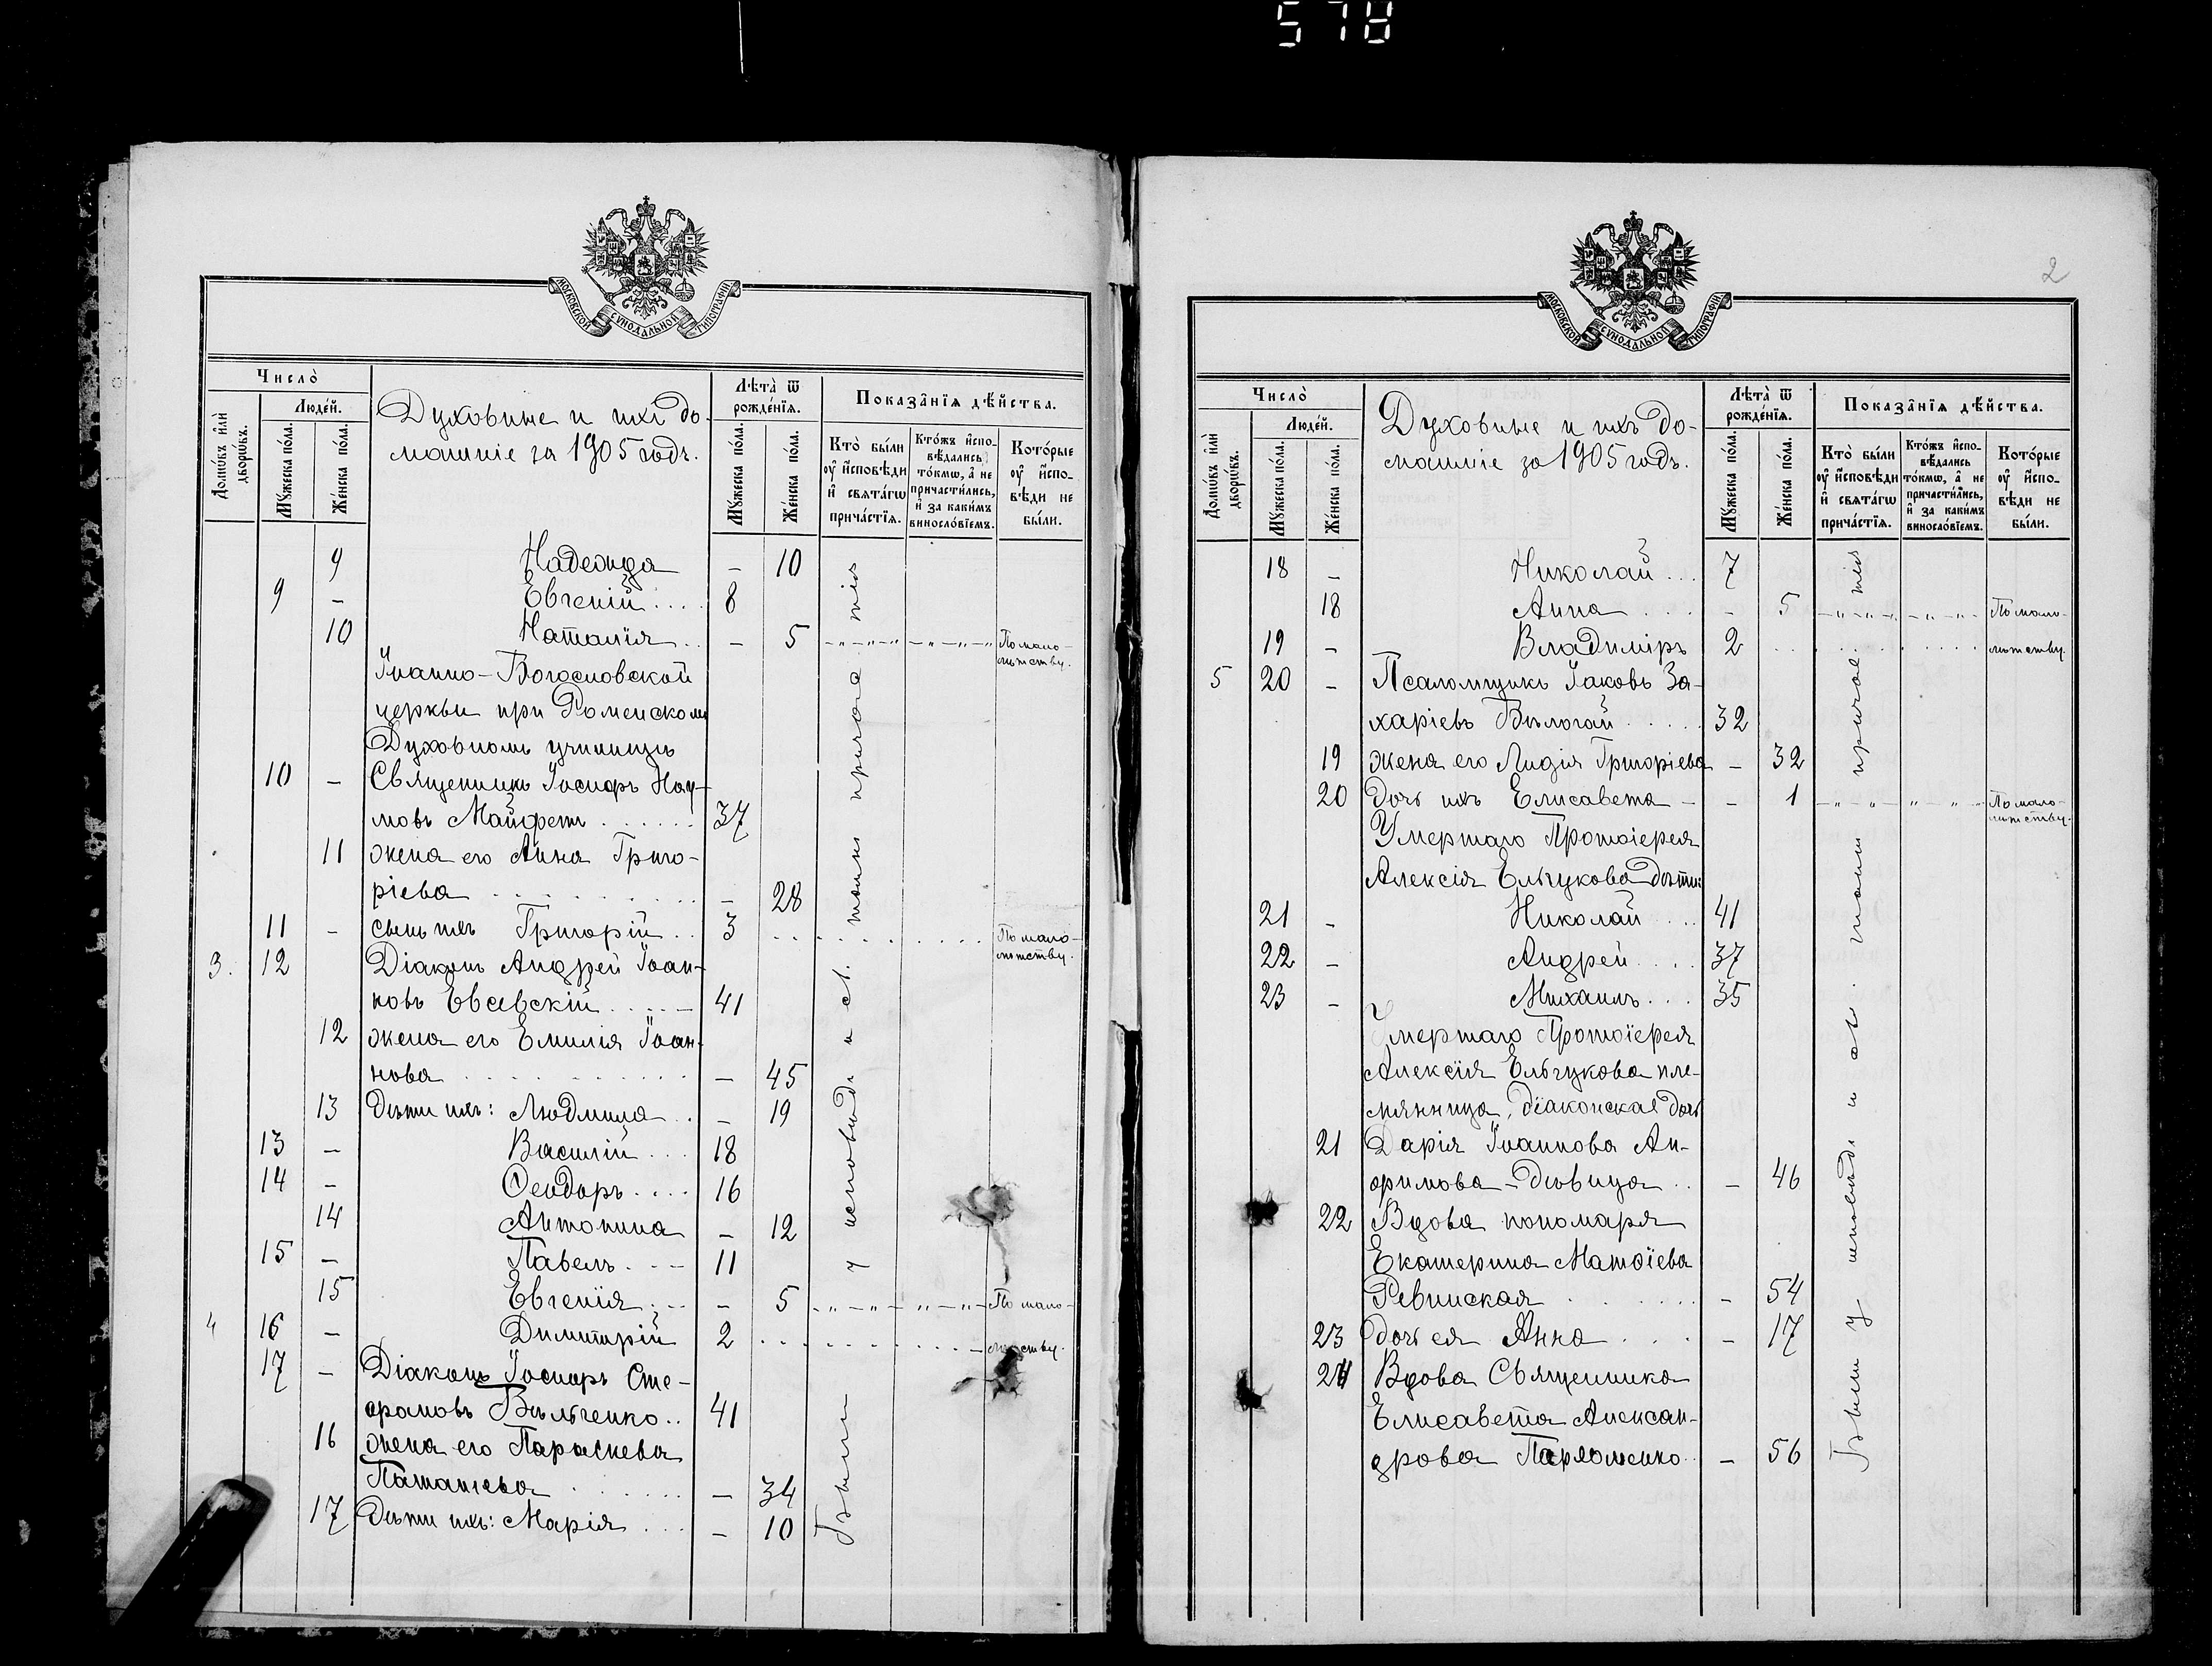 578
МОСКОВСКОЙ СѴНОДАЛЬНОЙ ТИПОГРАФІИ
Число̀
Домѡ́въ и҆лѝ дворѡ́въ.
Люде́й.
Мꙋ́жеска по́ла.
Же́нска по́ла.
Духовные и ихъ до-
машніе за 1905 годъ.
Лѣ́та ѿ рожде́нїѧ.
Мꙋ́жеска по́ла.
Же́нска по́ла.
Показа̑нїѧ дѣ́йства.
Кто̀ бы́ли ᲂу҆ и҆сповѣди и҆ свѧта́гѡ прича́стїѧ.
Кто́жъ и҆спо-вѣдались то́кмѡ, а҆ не причасти́лись, и҆ за каки́мъ виносло́вїемъ.
Кото́рые ᲂу҆ и҆спо-вѣди не бы́ли.
9 Надежда – 10
9 – Евгеній .... 8
10 Наталія .. – 5 По мало-
лѣтству.
Іоанно-Богословской
церкви при Роменскомъ
Духовномъ училищѣ
10 – Священникъ Іосифъ Нау-
мовъ Майфетъ ...... 37
11 жена его Анна Григо-
ріева – 28
11 – сынъ ихъ Григорій .. 3 По мало-
лѣтству.
3. 12 Діаконъ Андрей Іоан-
новъ Евсевскій ..... 41
12 жена его Емилія Іоан-
нова – 45
13 Дѣти ихъ: Людмила .. – 19
13 – Василій ... 18
14 – Ѳеодоръ .... 16
14 Антонина – 12
15 – Павелъ. – – 11
15 Евгенія – 5 По мало-
4 16 – Димитрій 2 лѣтству.
17 – Діаконъ Іосифъ Сте-
фановъ Вильченко .. 41
16 жена его Параскева
– 34
17 Дѣти ихъ: Марія ... – 10
Были у исповѣди и св. тайнъ причастія
2
МОСКОВСКОЙ СѴНОДАЛЬНОЙ ТИПОГРАФІИ
Число̀
Домѡ́въ и҆лѝ дворѡ́въ.
Люде́й.
Мꙋ́жеска по́ла.
Же́нска по́ла.
Духовные и ихъ до-
машніе за 1905 годъ.
Лѣ́та ѿ рожде́нїѧ.
Мꙋ́жеска по́ла.
Же́нска по́ла.
Показа̑нїѧ дѣ́йства.
Кто̀ бы́ли ᲂу҆ и҆сповѣди и҆ свѧта́гѡ прича́стїѧ.
Кто́жъ и҆спо-вѣдались то́кмѡ, а҆ не причасти́лись, и҆ за каки́мъ виносло́вїемъ.
Кото́рые ᲂу҆ и҆спо-вѣди не бы́ли.
18 – Николай ... 7
18 Анна – 5 По мало-
19 – Владиміръ 2 лѣтству.
5 20 – Псаломщикъ Іаковъ За-
харіевъ 32
19 жена его Лидія Григоріева – 32
20 дочь ихъ Елисавета – – 1 По мало-
лѣтству.
Умершаго Протоіерея
Алексія Ельчукова дѣти:
21 – Николай ... 41
22 – Андрей .... 37
23 – Михаилъ ... 35
Умершаго Протоіерея
Алексія Ельчукова пле-
мянница, діаконская дочь
21 Дарія Іоаннова Ан-
фимова – дѣвица .. – 46
22 Вдова пономаря
Екатерина Матѳіева
Ревинская – 54
23 дочь ея Анна .... – 17
24 Вдова Священника
Елисавета Алексан-
дрова Пархоменко – 56
Были у исповѣди и св. тайнъ причастія